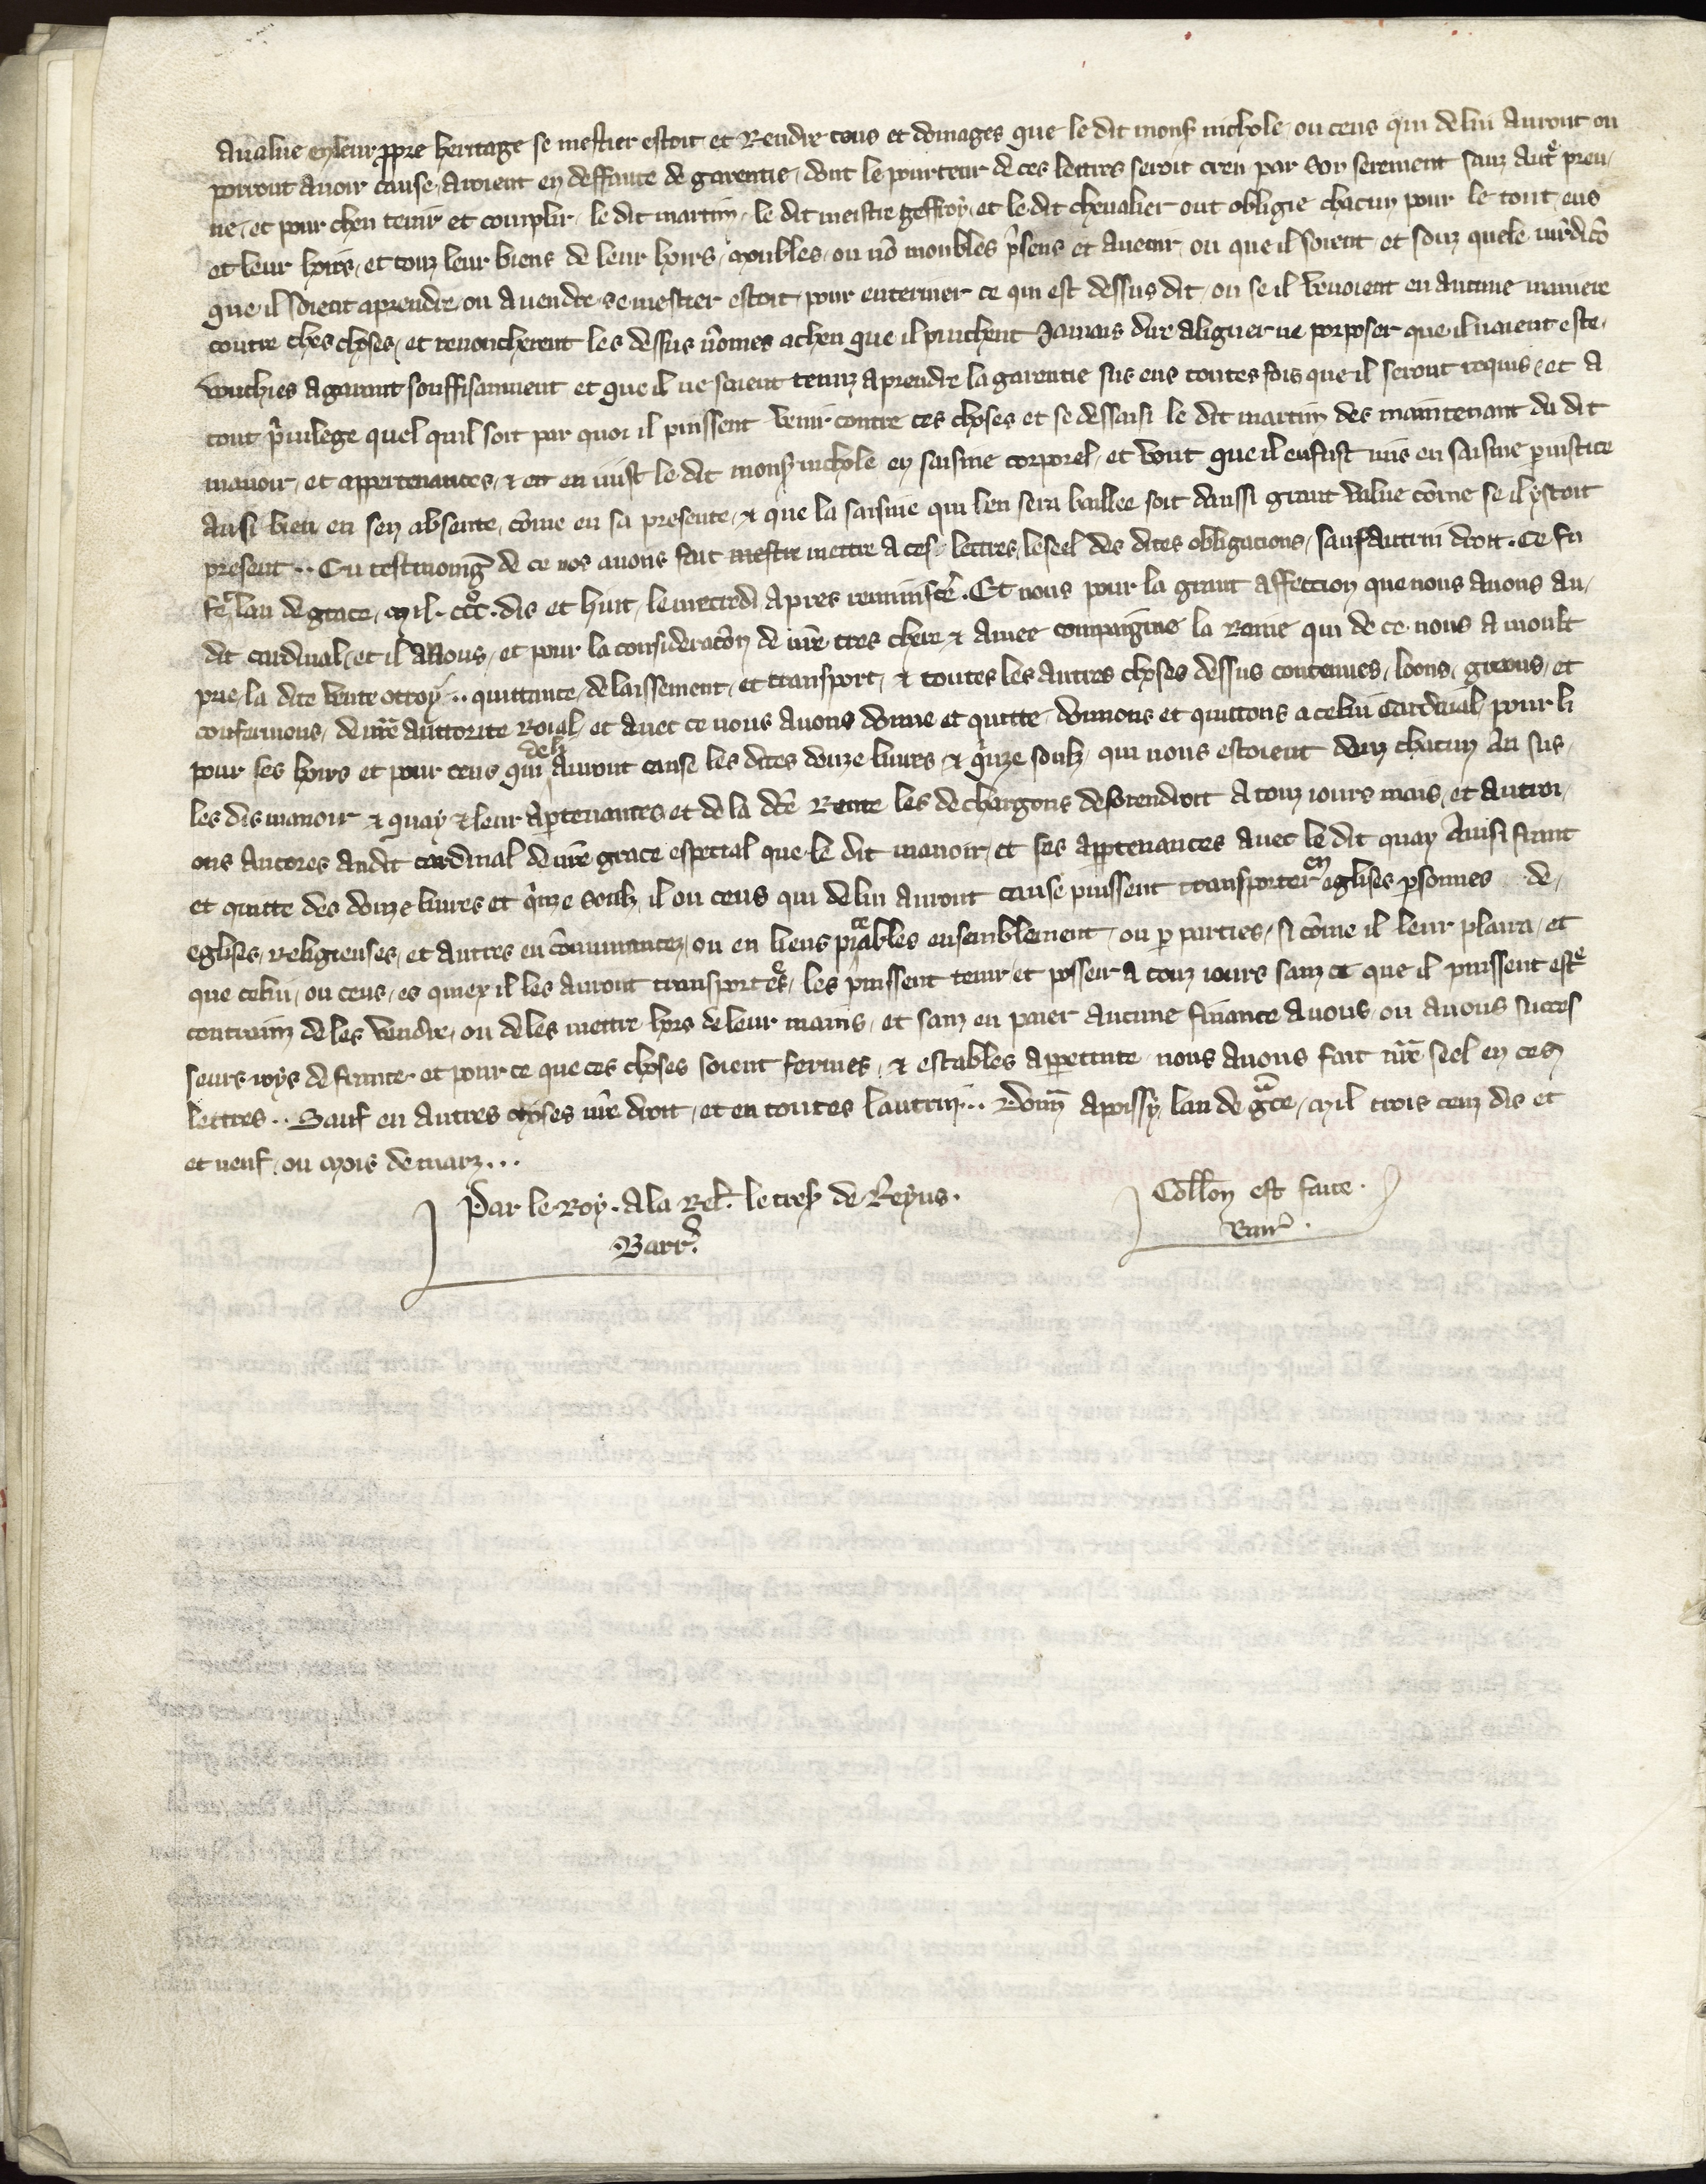 a value en leur ppre heritage se mestier estoit et Rendre cous et domages que le dit mons nichole ou ceus qui de lui auront ou
porront auoir cause, aroient en deffaute de garentie, dont le porteur de ces lettres seroit creu par son serement sanz autᵉ preu-
ue, et pour chen tenir et complir, le dit martin, le dit mestre geffroy et le dit cheualier ont obligie chacun pour le tout, eus
et leur hoirs, et touz leur biens de leur hoirs, moubles, ou nō moubles p̄sens et auenir, ou que il soient et souz quele iur̄dicō
que il soient a prendre ou a vendre se mestier estoit, pour enteriner ce qui est dessus dit, ou se il venoient en aucune maniere
contre ches choses, et renoncherent les dessus nōmes a chen que il puichent Jamais dire aliguer ne porposer que il naient este
vouchies a garant souffisanment et que il ne soient tenuz a prendre la garentie sus eus toutes fois que il seront requis, et a
tout p̄uilege quel quil soit par quoi il puissent venir contre ces choses et se dessaisi le dit martin des maintenant du dit
manoir, et appertenances, & en mist le dit mons nichole en saisine corporel, et vout que il en fust mis en saisine p iustice
ausi bien en sen absence, cōme en sa presence, & que la saisine qui len sera baillee soit daussi grant value cōme se il ystoit
present.. En tesmoing de ce nos auons fait mettre a ces lettres, le seel des dites obligations, sauf autrui droit. Ce fu
fᵉt, lan de grace, mil. ccc̊. dis et huit, le mecredi apres reminiscēr. Et nous pour la grant affeccion que nous auons au
dit cardinal, et il a nous, et pour la consideraciō de nr̄e tres chiere & amee compaigne la Roine qui de ce nous a moult
prie, la dite vente ottroy.. quittance, delaissement, et transport, & toutes les autres choses dessus contenues, loons, greons, et
confermons, de nr̄e auttorite Roial, et auec ce nous auons donne et quitte, donnons et quittons a celui Cardinal, pour li
pour ses hoirs et pour ceus qui de li auront cause les dites douze liures & q̄nze soulz, qui nous estoient deuz chacun an sus
les dis manoir & quay & leur aptenances et de la dc̄e Rente les dechargons desorendroit a touz iours mais, et autroi-
ons ancores au dit cardinal de nr̄e grace especial que le dit manoir, et ses apptenances auec le dit quay Ainsi franc
et quitte des douze liures et q̄nze soulz, il ou ceus qui de lui auront cause puissent transporter en eglises psonnes de
eglises, Religieuses, et autres en cōmunautez, ou en lieus piteables ensemblement, ou p parties, si cōme il leur plaira, et
que celui, ou ceus, es quiex il les auront transportes, les puissent tenir et posseir a touz iours sanz ce que il puissent estᵉ
contrainz de les vendre, ou de les mettre hors de leur mains, et sanz en paier aucune finance a nous, ou a nous succes
seurs roys de france, et pour ce que ces choses soient fermes, & estables a ppetuite nous auons fait mēt̄re seel en ces
lettres.. Sauf en autres choses nr̄e droit, et en toutes lautrui... Donn̄ a poissy, lan de gᵃce, mil trois cenz dis et
et neuf, ou mois de marz...
Par le Roy. a la Rel̄. le tres̄ de Reyns.
Barr̄.
Coll̄on est faite.
Barr̄.